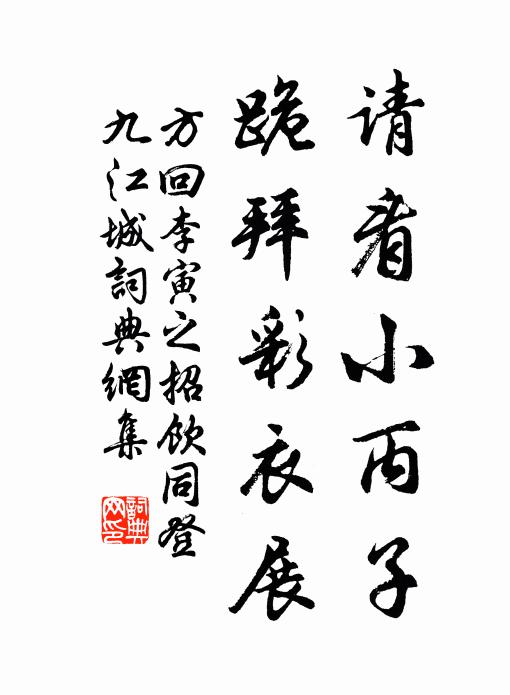 请看小丙子
跪拜彩衣展
方回李寅之招饮同登
九江城詞典網集
詞典
网印